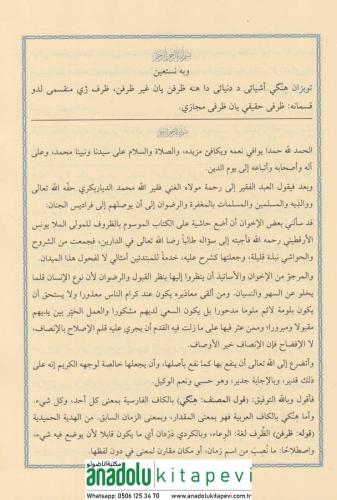 بسم الله الرحمن الرحيم
وبه نستعين
توبزان هنگي أشيائى د دنيائى دا هنه ظرفن يان غير ظرفن، ظرف ژي منقسمى لدو
قسمانه: ظرفى حقيقي يان ظرفى مجازي.
بسم الله الرحمن الرحيم
الحمد لله حمدا يوافي نعمه ويكافئ مزيده، والصلاة والسلام على سيدنا ونبينا محمد، وعلى
آله وأصحابه وأتباعه إلى يوم الدين.
وبعد فيقول العبد الفقير إلى رحمة مولاه الغني فقير الله محمد الدياربكري حفّه الله تعالى
ووالدِيه والمسلمين والمسلمات بالمغفرة والرضوان إلى أن يوصلهم إلى فراديس الجنان:
قد سألني بعض الإخوان أن أضع حاشية على الكتاب الموسوم بالظروف للمولى الملا يونس
الأرقطيني رحمه الله فأجبته إلى سؤاله طالباً رضا الله تعالى في الدارين، فجمعت من الشروح
والحواشي نبذة قليلة، وجعلتها كشرح عليه، خدمةً للمبتدئين أمثالي لا لفحول هذا الميدان.
والمرجوّ من الإخوان والأساتيذ أن ينظروا إليها بنظر القبول والرضوان لأن نوع الإنسان قلما
يخلو عن السهو والنسيان. ومن ألقى معاذيره يكون عند كرام الناس معذورا ولا يستحق أن
يكون بلومة لائم ملوما مدحورا بل يكون السعي لديهم مشكورا والعمل الخيّر بين يديهم
مقبولا ومبرورا؛ وممن عثر فيها على ما زلت فيه القدم أن يجري عليه قلم الإصلاح بالإنصاف،
لا الإفضاح فإن الإنصاف خير الأوصاف.
وأتضرع إلى الله تعالى أن ينفع بها كما نفع بأصلها، وأن يجعلها خالصة لوجهه الكريم إنه على
ذلك قدير، وبالإجابة جدير، وهو حسبي ونعم الوكيل.
فأقول وبالله التوفيق: (قول المصنف: هِنْگي) بالكاف الفارسية بمعنى كل أحد، وكل شيء.
وأما هنكي بالكاف العربية فهو بمعنى المقدار، وبمعنى الزمان السابق. من الهدية الحميدية
(قوله: ظرفن) الظَّرف لغة: الوعاء، وبالكردي دَرْدان أي ما يكون قابلا لأن يوضع فيه شيء،
واصطلاحًا: ما نُصِبَ من اسم زمان، أو مكان مقارن لمعنى في دون لفظها.
مكتبة أناضولو
anadolukitapevi
Whatsapp: 0506 125 34 70 www.anadolukitapevi.com